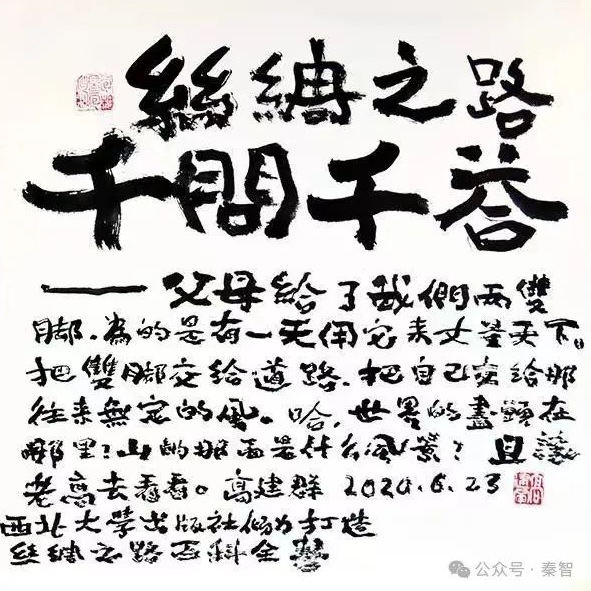 絲綢之路
千問千答
——父母給了我們兩雙
脚。為的是有一天用它来丈量天下。
把雙脚交給道路。把自己交給那
往来無定的风。哈，世界的盡頭在
哪里？山的那面是什么风景？且讓
老高去看看。高建群 2020.6.23
西北大學出版社倾力打造
絲綢之路百科全書
公众号·秦智